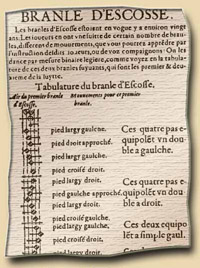 BRANLE D'ESCOSSE.
Les branles d'Escosse estoient en vogue y a environ vingt
ans. Les ioueurs en ont
nombre de
mouuements, que vous pourrez apprédre par
ioueurs, ou de voz compaignons: On les
dance par mesure binaire legiere, comme voyez en la tabula
ture de ces deux branles suyuants, qui sont les premier & de
de la suytte.
Tabulature du branle d'Escosse,
Air du premier branle Mouuements pour ce premier
d'Escosse. branle.
pied largy gaulche. Ces quatre pas e-
pied droit approché. quipolét vn dou-
pied largy gaulche. ble a gaulche.
pied croisé droit.
pied largy droit. Ces quatre pas e-
pied gaulche approché. quipolét vn dou-
pied largy droit. ble a droit.
pied croisé gaulche.
pied largy gaulche. Ces deux equipo
pied croisé droit. lét a simple gaul.
pied largy droit.